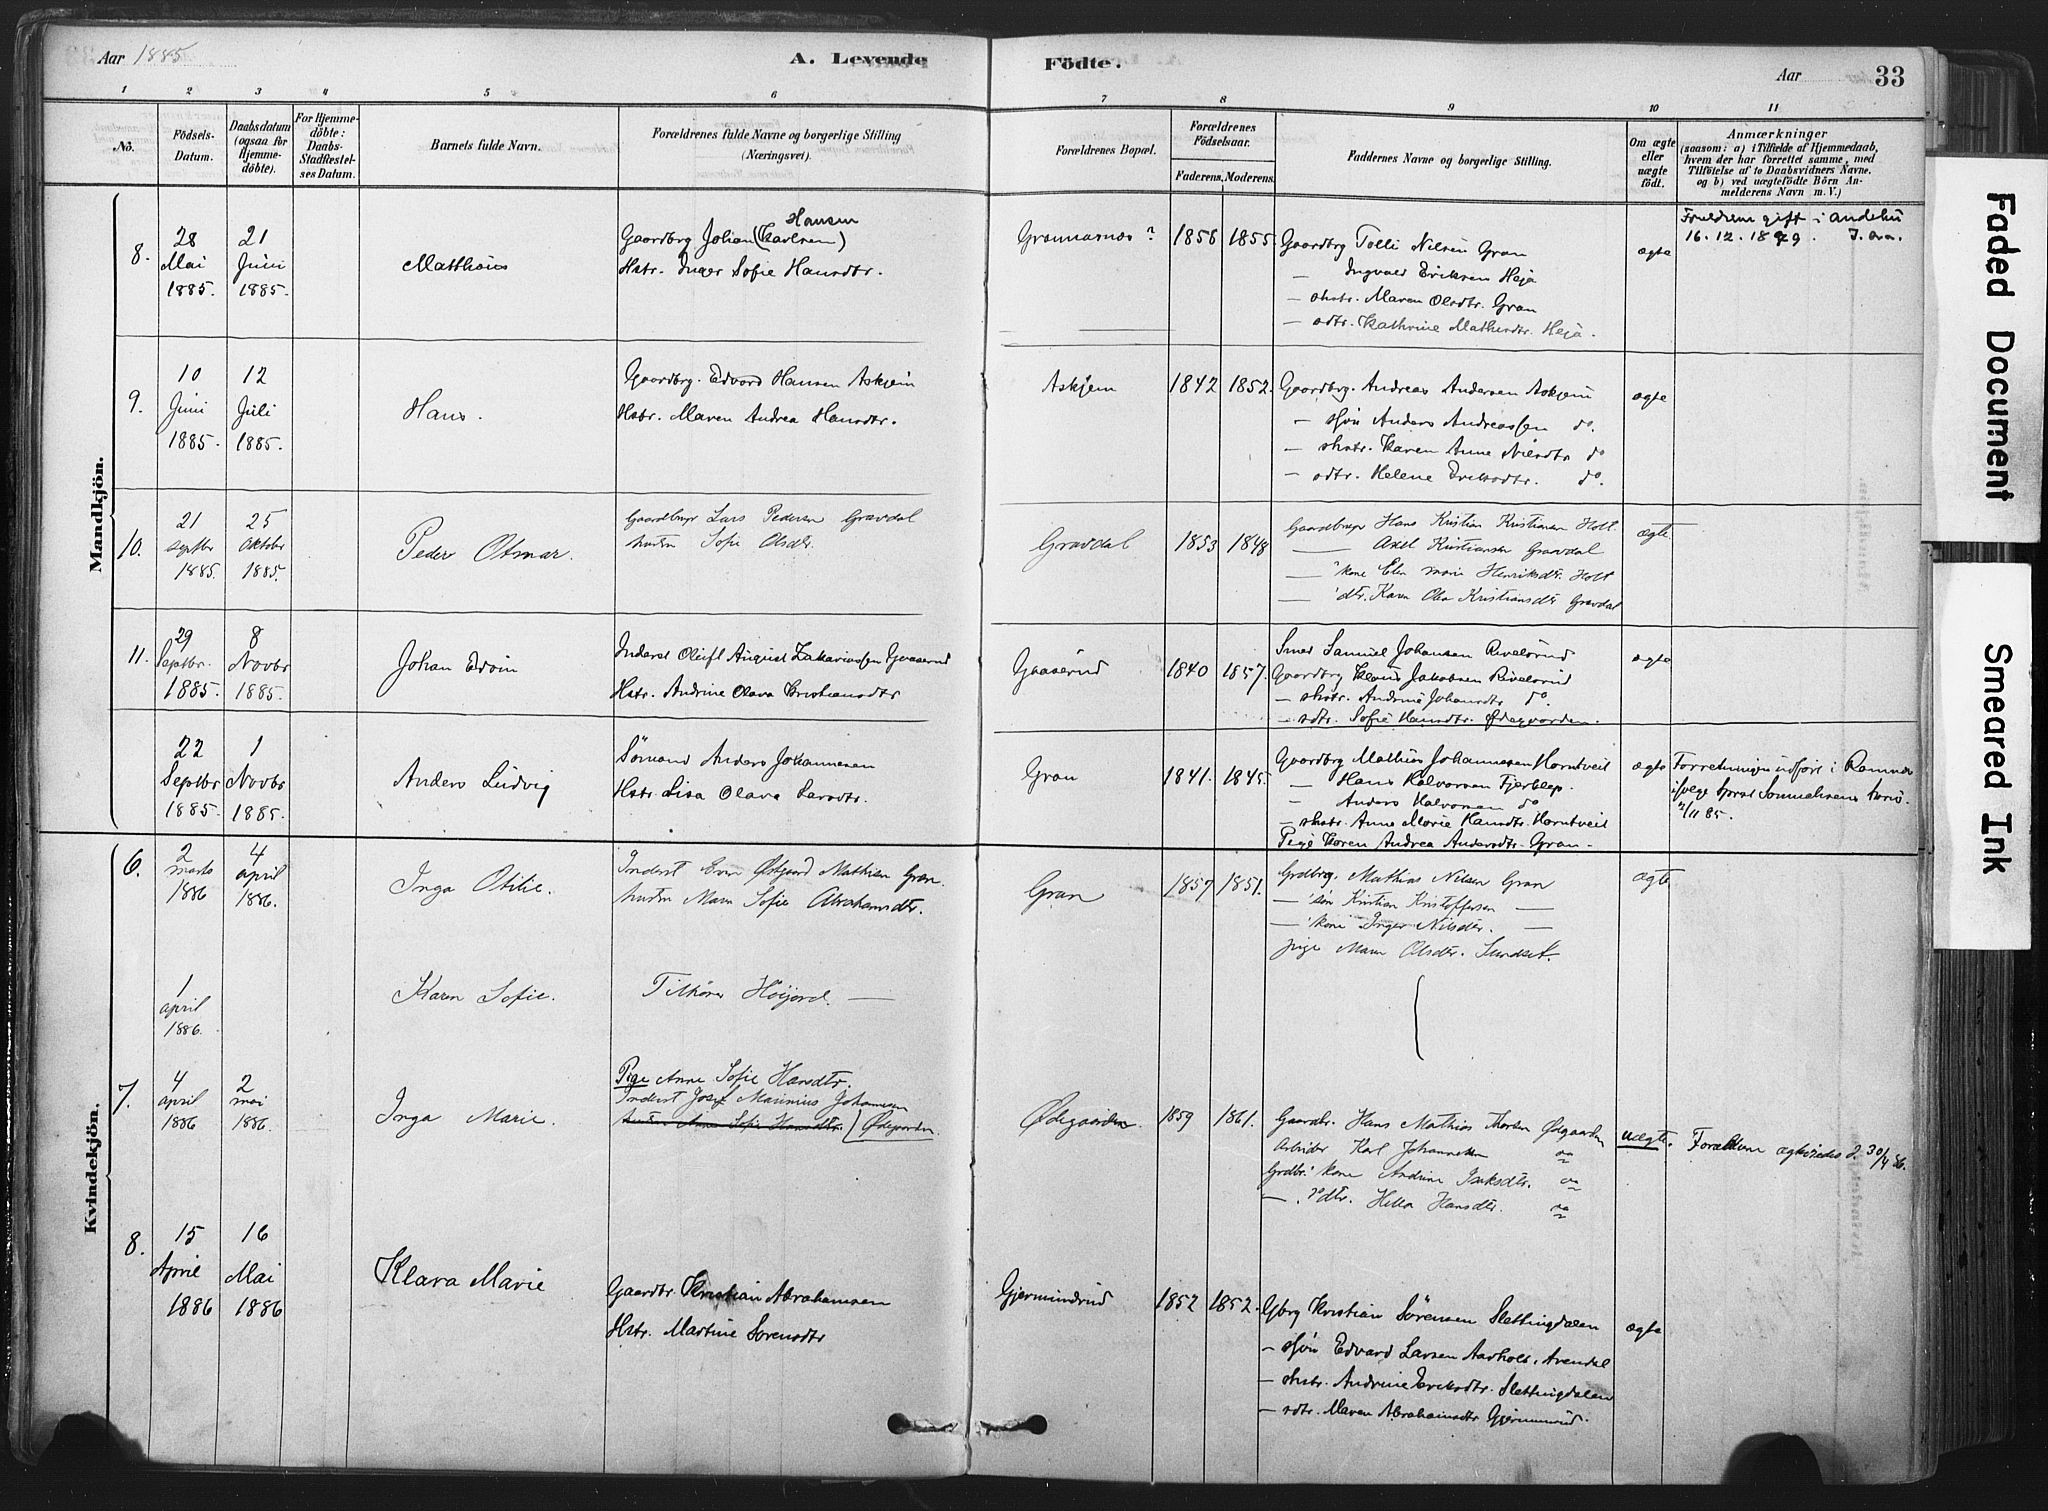 Aar 1885
A. Levende Födte.
Aar
33
1 2 3 4 5 6 7 8 9 10 11
No.
Födsels-Datum.
Daabsdatum (ogsaa for Hjemmedöbte).
For Hjemmedöbte: Daabs-Stadfestelses Datum.
Barnets fulde Navn.
Forældrenes fulde Navne og borgerlige Stilling (Næringsvei).
Forældrenes Bopæl.
Forældrenes Födselsaar.
Faderens. Moderens.
Faddernes Navne og borgerlige Stilling.
Om ægte eller uægte födt.
Anmærkninger
(saasom: a) i Tilfælde af Hjemmedaab, hvem der har forrettet samme, med Tilföielse af to Daabsvidners Navne. og b) ved uægtefödte Börn Anmelderens Navn m. V.)
Mandkjön.
8.
28 Mai 1885.
21 Juni 1885.
Matthæus
Hansen
Gaardbrg Johan (Karlsen)
Hstr. Inger Sofie Hansdtr.
1856 1855.
Gaardbrg Tolli Nilsen Gran
— Ingvald Eriksen Hejä
— shstr. Maren Olsdtr. Gran
— sdtr. Kathrine Mathisdtr. Hejä.
ægte
gift i Andebu
16.12.1879.
9.
10 Juni 1885.
12 Juli 1885.
Hans.
Gaardbrg. Edvard Hansen Askjem
Hstr. Maren Andrea Hansdtr.
Askjem
1842 1852.
Gaardbrg. Andreas Andersen Askjem
— sön Anders Andreassen do.
— shstr. Karen Anne Nilsdtr do
— sdtr. Helene Eriksdtr. do.
ægte
10.
21 septbr 1885.
25 Oktober 1885.
Peder Otmar.
Gaardbruger Lars Pedersen Gravdal
hustru Sofie Olsdtr.
Gravdal
1853 1848
Gaardbruger Hans Kristian Kristiansen Holt
— Axel Kristiansen Gravdal
— kone Elen Marie Henriksdtr. Holt
— dtr. Karen Olea Kristiansdtr Gravdal
ægte
11.
29 Septbr. 1885.
8 Novbr 1885.
Johan Edvin
Inderst Oluf August Zakariassen Gaaserud
Hstr. Andrine Olava Kristiansdtr
Gaaserud
1840 1857.
Smed Samuel Johansen Rivelsrud
Gaardbrg Klaus Jakobsen Rivelsrud
— shstr. Andrine Johansdtr do.
— sdtr. Sofie Hansdtr. Ødegaarden.
ægte
22 Septbr 1885.
1 Novbr 1885.
Anders Ludvig
Sömand Anders Johannesen
Hstr. Lisa Olava Larsdtr.
Gran
1841. 1845.
Gaardbrg Mathias Johannesen Horntveit
— Hans Halvorsen Fjerklep.
— Anders Halvorsen do
— shstr. Anne Marie Hansdtr. Horntveit
Pige Karen Andrea Andersdtr. Gran.
ægte
Forretningen udfört i Ramnes
2/11 85.
Kvindekjön.
6.
2 marts 1886
4 april 1886.
Inga Otilie.
Inderst Even Østgaard Mathisen Gran.
hustru Maren Sofie Abrahamsdtr.
Gran
1857 1851.
Grdbrg. Mathias Nilsen Gran
— sön Kristian Kristoffersen —
— kone Inger Nilsdtr. —
pige Maren Olsdtr. Sundset.
ægte
1 april 1886.
Karen Sofie.
Tilhörer Höijord. —
7.
4 april 1886
2 mai 1886.
Inga Marie.
Pige Anne Sofie Hansdtr.
Inderst Josef Marinius Johansen
hustru Anne Sofie Hansdtr. Ødegaarden
Ødegaarden
1859 1861.
Gaardbr. Hans Mathias Thorsen Ødegaarden
Arbeider Karl Johannesen
Grdbr. kone Andrine Isaksdtr.
— dtr. Helka Hansdtr.
uægte.
Forældrene ægteviedes d. 30/4 86.
8.
15 April 1886
16 Mai 1886
Klara Marie
Gaardbr. Kristian Abrahamsen
Hstr. Martine Sorensdtr
Gjermundrud
1852 1852.
Gbrg Kristian Sörensen Slettingdalen
— sön Edvard Larsen Aarholt, Arendal
— shstr. Andrine Eriksdtr. Slettingdalen
— sdtr. Maren Abrahamsdtr Gjermunrud.
ægte
Faded Document
Smeared Ink